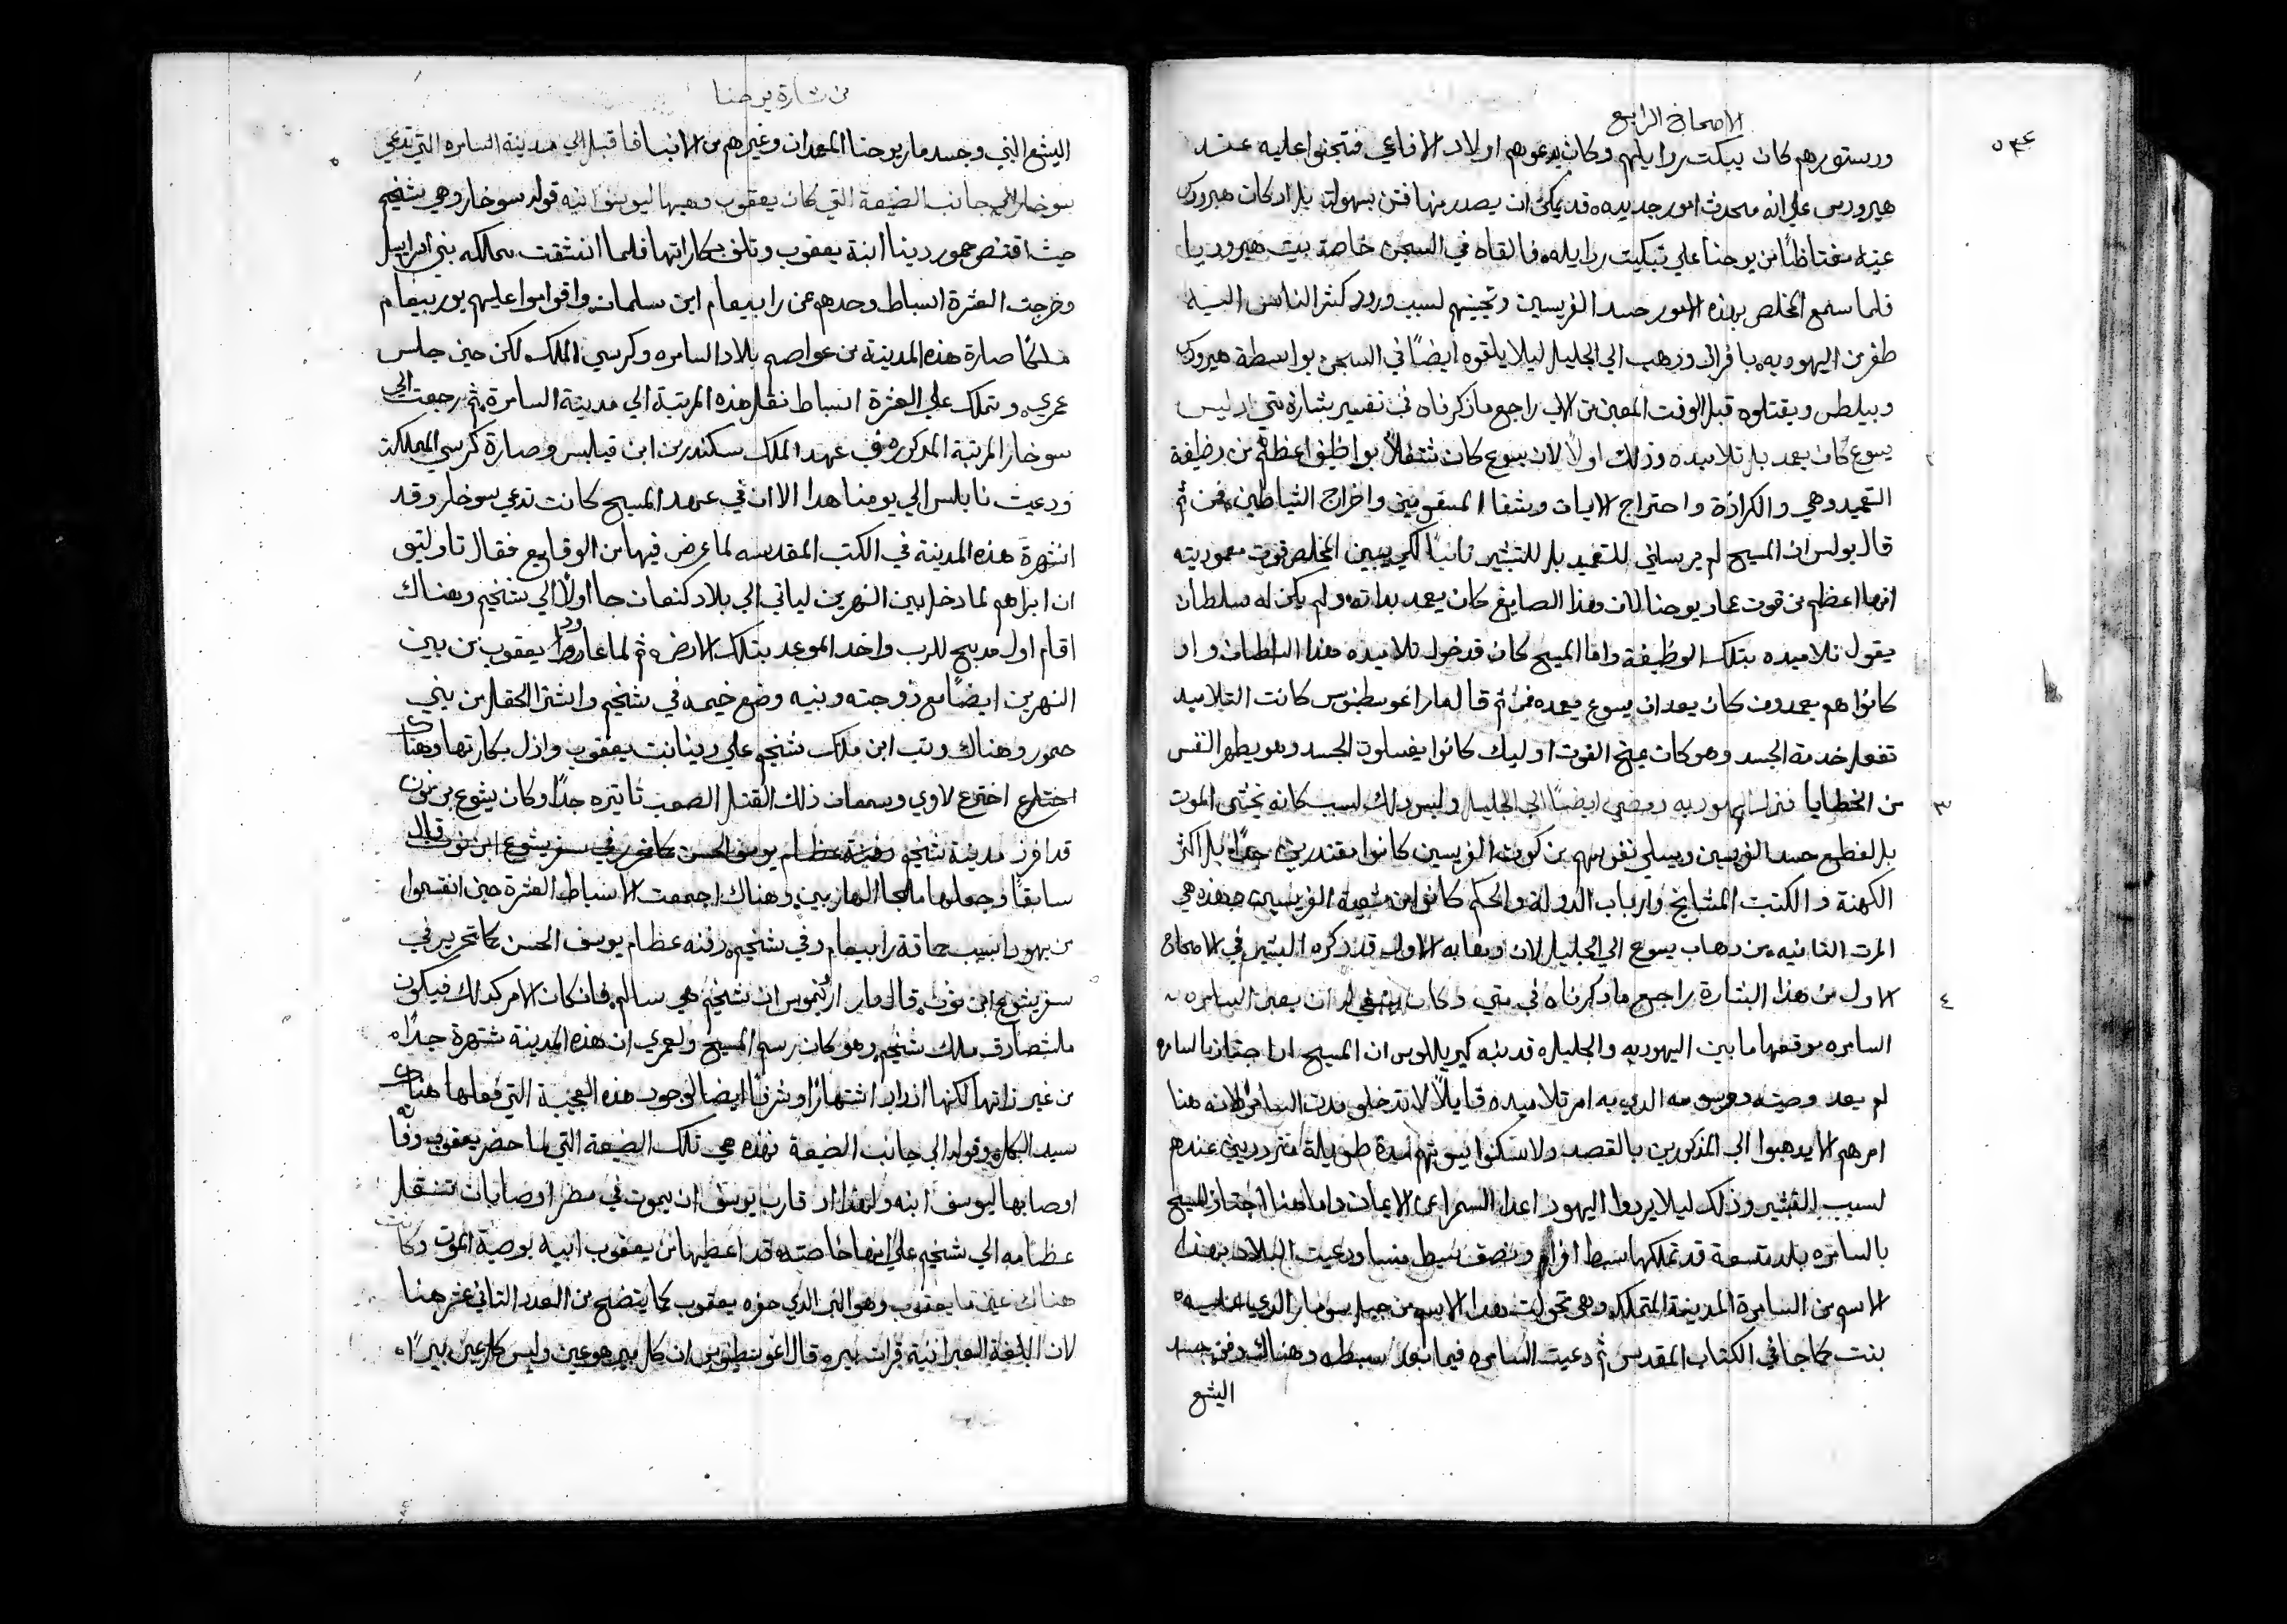 الاصحاح الرابع
٥٣٤
ودستورهم كان يبكت رذايلهم وكان يدعوهم اولاد الافاعي فتجنوا عليه عند
هيرودس على انه محدث امور جديده قد يمكن ان يصدر منها فتن بسهولة بلاد كان هيرودس
عينه مغتاظًا من يوحنا على تبكيت رذايله فالقاه في السجن خاصة بيت هيروديا
فلما سمع المخلص بهذه الامور حسد الفريسين وتجنيهم لسبب ورود كثر الناس اليه
طفر من اليهوديه بافراق وذهب الى الجليل ليلا يلقوه ايضًا في السجن بواسطة هيرودس
وبيلطس ويقتلوه قبل الوقت المعين من الاب راجع ما ذكرناه في تفسير بشارة متي اد ليس
يسوع كان يعمد بل تلاميده وذلك اولًا لان يسوع كان مشتغلًا بواظيف اعظم من وظيفة
التعميد وهي والكرازة واحتراج الايات وشفا المسقومين واخراج الشياطين فمن ثم
قال بولس ان المسيح لم يرسلني للتعميد بل للتبشير ثانيًا لكي يبين المخلص قوت معموديته
انها اعظم من قوت عماد يوحنا لان هذا الصابغ كان يعمد بداته ولم يكن له سلطان
يقول تلاميده بتلك الوظيفة واما المسيح كان قد خول تلاميده هذا السلطان واد
كانوا هم يعمدون كان يعد ان يسوع يعمده فمن ثم قال مار اغوسطنوس كانت التلاميد
تفعل خدمة الجسد وهو كان يمنح القوت اوليك كانوا يغسلون الجسد وهو يطهر النفس
٣ من الخطايا فترك اليهوديه ومضى ايضًا الى الجليل وليس ذلك لسبب كانه يختشى الموت
بل لقطع حسد الفريسين ويسلي نفوسهم من كون الفريسين كانوا مقتدرين جدًا بل اكثر
الكهنة والكتبت المشايخ وارباب الدولة والحكم كانوا من شيعة الفريسين فهذه هي
المرت الثانيه من دهاب يسوع الى الجليل لان دهابه الاول قد ذكره البشير في الاصحاح
٤ الاول من هذا البشارة راجع ما دكرناه في متي وكان ينبغي له ان يعبر السامره
السامره موقعها ما بين اليهوديه والجليل قد نبه كيريللوس ان المسيح اذا اجتاز بالسامره
لم يعد وصيته ومرسومه الدي به امر تلاميده قايلًا لا تدخلو مدن السامره لانه هنا
امرهم الا يدهبوا الى المذكورين بالقصد ولا يسكنوا بيوتهم مدة طويلة مترددين عندهم
لسبب التبشير وذلك ليلا يردوا اليهود اعدا السمرا عن الايمان واما هنا اجتاز المسيح
بالسامره بلد متسعة قد تملكها سبط افرام ونصف سبط منسا ودعيت البلاد بهذا
الاسم من السامرة المدينة المتملكه وهي تحولت هدا الاسم من جبل سومار الدي عليه
بنت كما جا في الكتاب المقدس ثم دعيت السامره فيما بعد سبسطه وهناك دفن جسد
اليشع
من بشارة يوحنا
اليشع النبي وجسد مار يوحنا المعمدان وغيرهم من الانبيا فاقبل الي مدينة السامره التي تدعي
سوخار الي جانب الضيعة التي كان يعقوب وهبها ليوسف ابنه قوله سوخار وهي شخيم
حيث اقتنص حمور دينا ابنة يعقوب وتلف بكاراتها فلما انشقت مملكه بني اسراييل
وخرجت العشرة اسباط وحدهم عن رابيعام ابن سلمان واقواموا عليهم يوربيعام
ملكًا صارة هذه المدينة من عواصم بلاد السامره وكرسي الملك لكن حين جلس
عمري وتملك علي العشرة اسباط نقل هذه المرتبة الي مدينة السامرة ثم رجعت الي
سوخار المرتبة المدكوره في عهد الملك سكندر بن ابن فيلبس وصارة كرسي المملكة
ودعيت نابلس الي يومنا هدا الا ان في عهد المسيح كانت تدعي سوخار وقد
اشتهرة هذه المدينة في الكتب المقدسه لما عرض فيها من الوقايع فقال تاولتيق
ان ابراهم لما دخل بين النهرين لياتي الي بلاد كنعان جا اولًا الي شخيم وهناك
اقام اول مدبح للرب واخد الموعد بتلك الارض ثم لما عاد يعقوب من بين
النهرين ايضًا مع زوجته وبنيه وضع خيمه في شخيم واشترا الحقل من بني
حمور وهناك وتب ابن ملك شخيم علي دينا بنت يعقوب وازل بكارتها وهناك
اختلع اخترع لاوي وسمعان ذلك القتل الصعب تاتيره جدًا وكان يشوع بن نون
قد افرز مدينة شخيم دفينة عظام يوسف الحسن كما تحرر في سفر يشوع ابن نون قال
سابقًا وجعلها ملجا الهاربين وهناك اجتمعت الاسباط العشرة حين انقسموا
من يهودا بسبب حماقة رابيعام وفي شخيم دفنه عظام يوسف الحسن كما تحرير في
سفر يشوع ابن نون قال مار ارنيموس ان شخيم هي ساليم فان كان الامر كدلك فيكون
ملشصادق ملك شخيم وهو كان رسم المسيح ولعمري ان هذه المدينة شتهرة جدًا
من غير زاتها لكنها ازداد اشتهارًا وشرفًا ايضا لوجود هذه العجيبة التي فعلها هناك
سيد الكل وقوله الي جانب الضيعة فهذه هي تلك الضيعة التي لما حضر يعقوب وفاته
اوصا بها ليوسف ابنه ولهذا اد قارب يوسف ان يموت في مصر اوصا بان تنتقل
عظامه الي شخيم علي انها خاصته قد اعطيها من يعقوب ابيه بوصية الموت وكانت
هناك عين ما يعقوب وهو البير الدي حفره يعقوب كما يتضح من العدد التاني عشر هنا
لان اللغة العبرانية قرات بيره قال اغوسطينوس ان كل بير هو عين وليس كل عين بيرًا